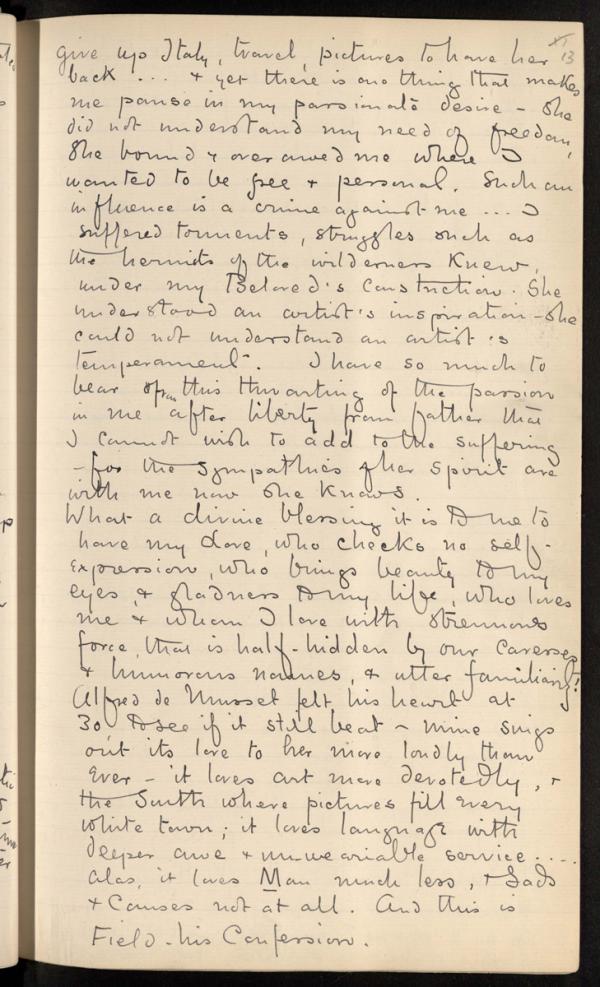 give up Italy, travel, pictures to have her
back ... & yet there is one thing that makes
me pause in my passionate desire – she
did not understand my need of freedom,
She bound & over awed me where I
wanted to be free & personal. Such an
influence is a crime against me ... I
suffered torments, struggles such as
the hermits of the wilderness knew,
under my Beloved's constriction. She
understood an artist's inspiration – she
could not understand an artist's
temperament. I have so much to
bear from this thwarting of the passion
in me after liberty from father that
I cannot wish to add to the suffering
– for the sympathies of her spirit are
with me now she knows.
What a divine blessing it is to me to
have my Love, who checks no self-
expression, who brings beauty to my
eyes, & gladness to my life, who loves
me & whom I love with strenuous
force, that is half-hidden by our caresses
& humorous names, & utter familiarity!
Alfred de Musset felt his heart at
30 to see if it still beat – mine sings
out its love to her more loudly than
ever – it loves art more devotedly, &
the South where pictures fill every
white town; it loves language with
deeper awe & unweariable service ....
alas, it loves Man much less, & Gads
& Causes not at all. And this is
Field – his Confession.
XI
13